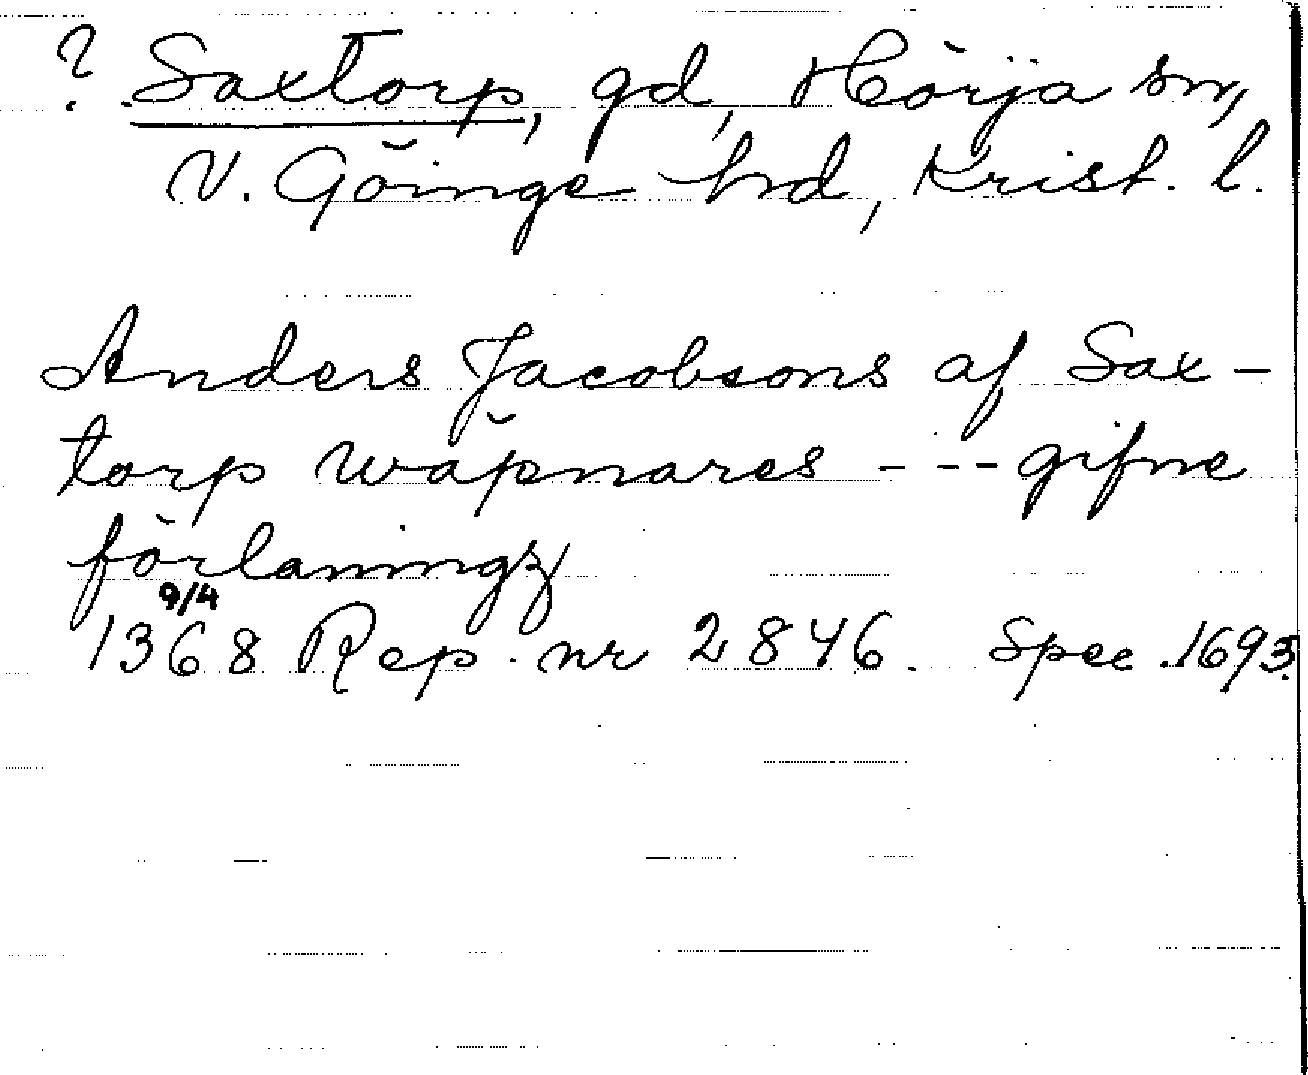 ? Saxtorp, gd, Hörja sn,
V. Göinge hd, Krist. l.
Anders Jacobsons af Sax-
torp wäpnares - - - gifne
förlaningz
9/4
1368 Rep. nr 2846. Spec. 1693.